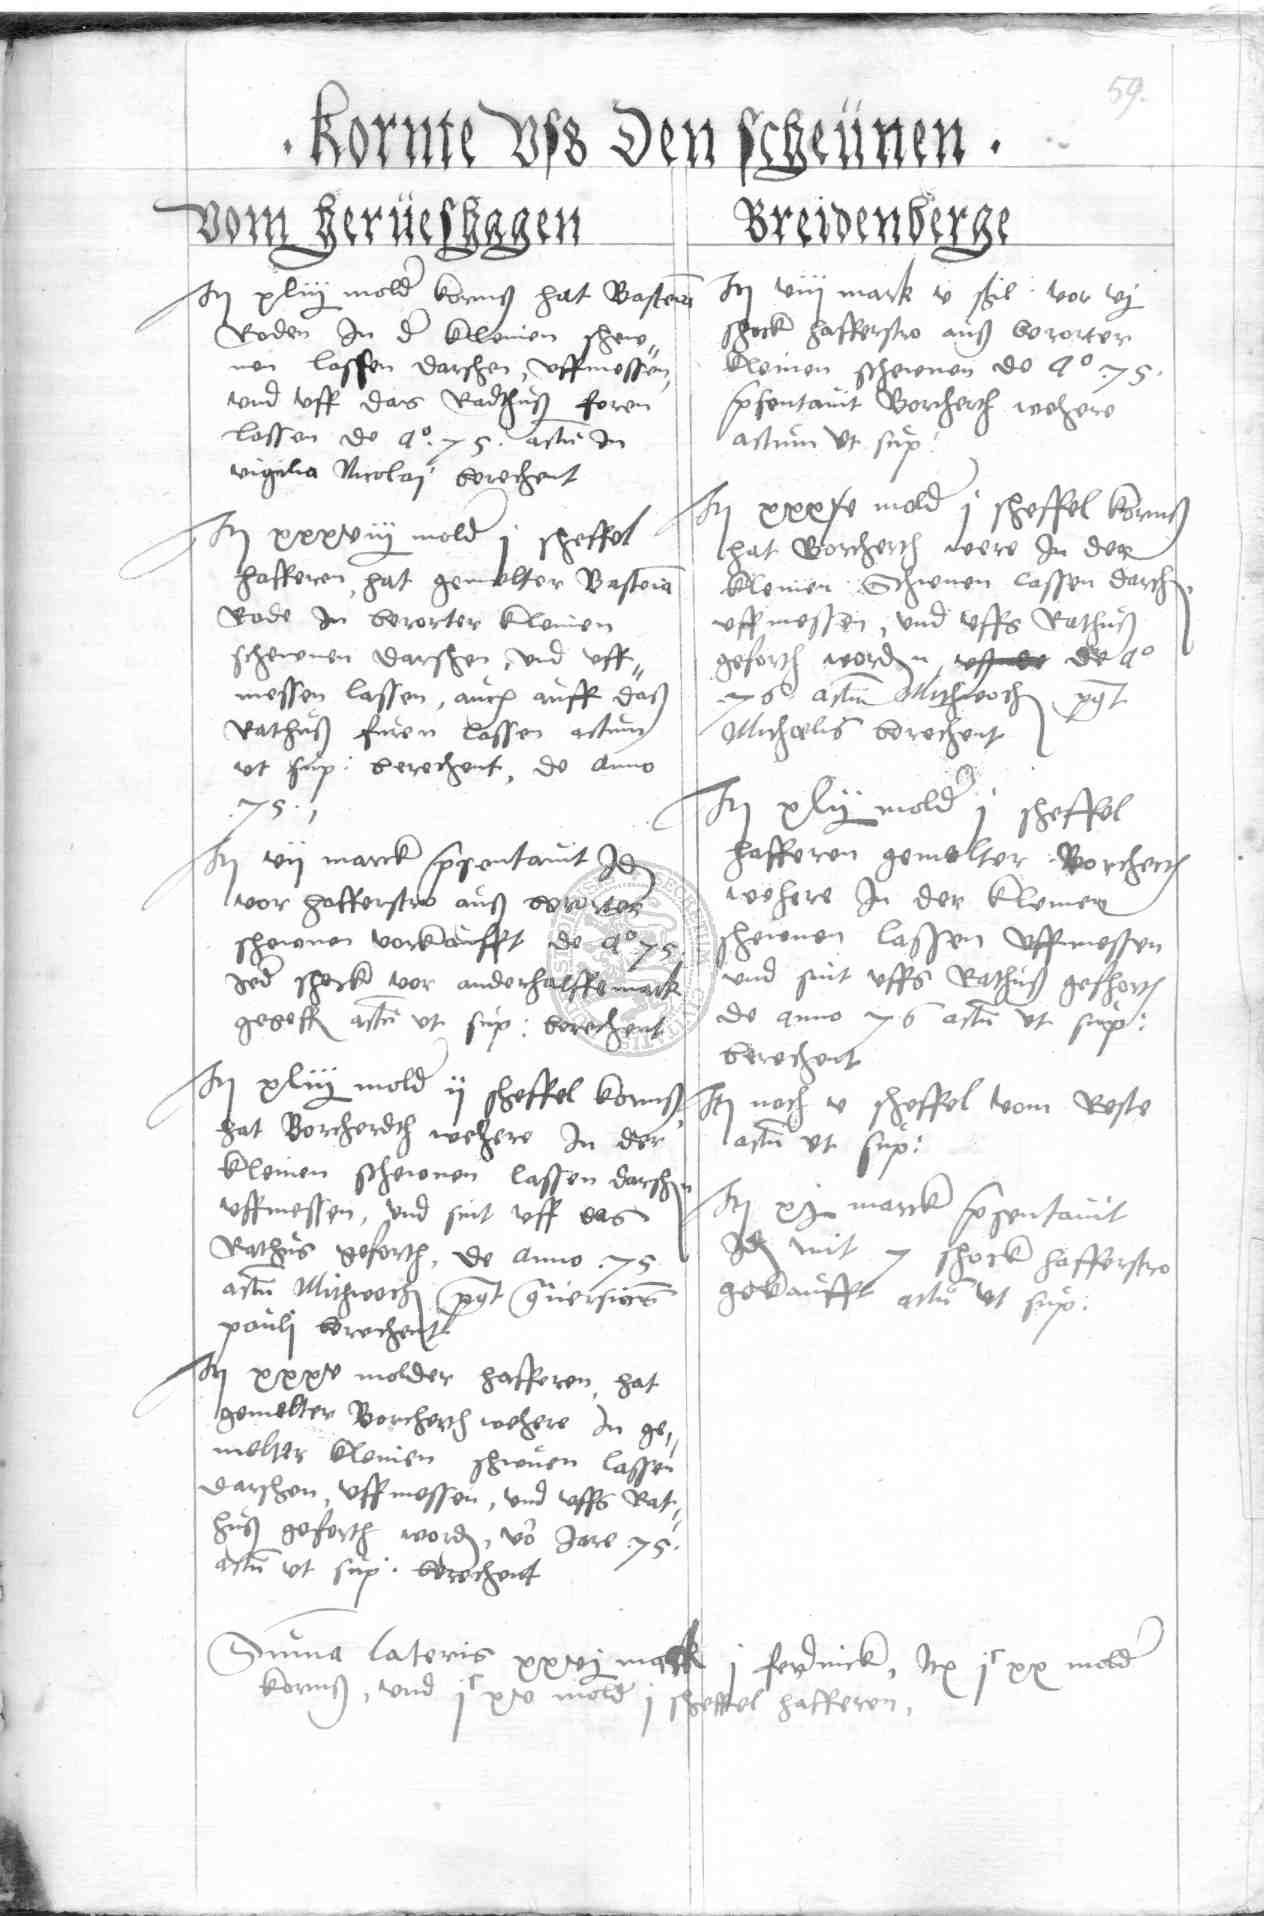 59.
. Kornte Vsß Den scheünen .
Vom herüeshagen
Itϥ xliij mold korns hat Bastean
Roden In d kleinen shew„
nen lassen darshen, uffmessen,
vnd vff das Radthuß foren
lassen de Aº. 75. actu In
vigilia Nicolaj berechent
Itϥ xxxviij mold j sheffel
hafferen, hat gemelter Bastean
Rode In berorter kleinen
schewnen darshen, vnd vff„
messen lassen, auch auff daß
Rathuß furen lassen actum
vt sup: berechent, de Anno
.75.,
Itϥ vij marck psentauit Id
vor hafferstro auß berorter
schewnen vorkaufft de Aº 75,
Jed shock vor anderhalffemark
geg actu vt sup: berechent
Itϥ xliij mold ij sheffel korns
hat Borcherdth wehere In der
kleinen schewnen lassen darshϥ
vffmessen, vnd sint vff das
Rathus geforth, de Anno .75
actu Mithwoch pt Cuersionis
paulj berechent
Itϥ xxxv molder hafferen, hat
gemelter Borcherth wehere In ge„
melter kleinen shewen lassen
darshen, vffmessen, vnd vffs Rat„
huß geforth word, vo Jare .75.
actu vt sup: berechent
Breidenberge
Itϥ viij mark v ßil: vor vj
shock hafferstro auß berorter
kleinen schewnen de Aº .75.
psentauit Borcherth wehere
actum vt sup:
Itϥ mold j sheffel korns
hat Borcherth were In der
kleinen Schewnen lassen darsch
vffmessen, vnd vffs Rathuß
geforth worden, de Aº
.76. actu Mithwoch pt
Michaelis berechent
Itϥ xlij mold j sheffel
hafferen gemelter Borcherth
wehere In der kleinen
shewnen lassen vffmessen
vnd sint vffs Rathuß gefhort
de Anno 76 actu vt sup:
berechent
Itϥ noch v sheffel vom Reste
actu vt sup:
Itϥ xj marck psentauit
Id mit 7 shock hafferstro
gekaufft actu vt sup:
Suma lateris xxvj mark j ferdinck, Itϥ jᶜ xx mold
korns, vnd jᶜ xv mold j sheffel hafferen,